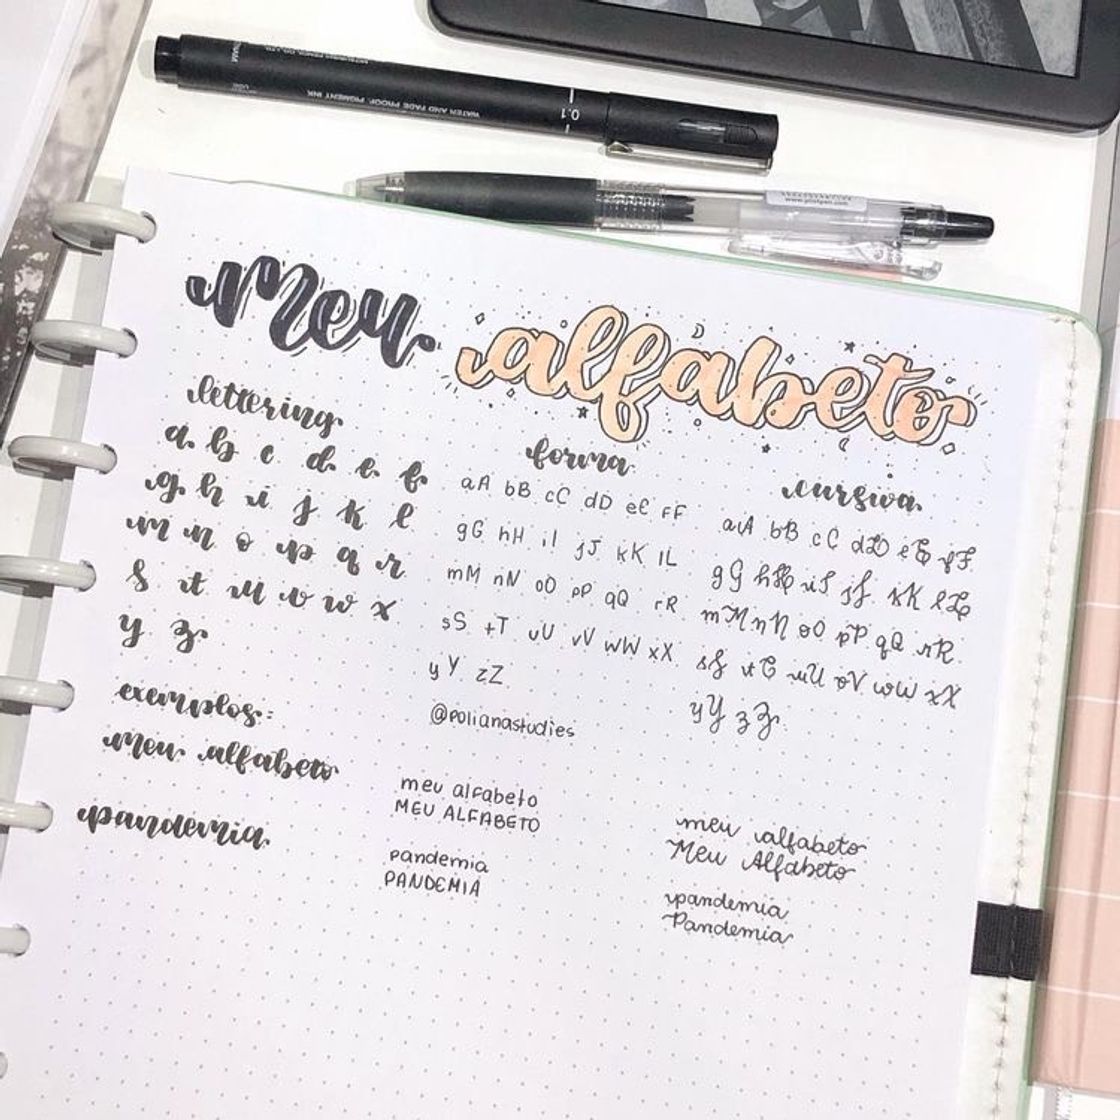 MITSUBISHI PENCIL CO., LTD
WATER AND FADE PROOF, PIGMENT INK
0.1
www.pilotpen.com
meu alfabeto
lettering
a. b c. d. e. f.
g. h i j k l
m n o p q r
s t u v w x
y z
exemplos:
meu alfabeto
pandemia
forma
aA bB cC dD eE fF
gG hH iI jJ kK lL
mM nN oO pP qQ rR
sS tT uU vV wW xX
yY zZ
@polianastudies
meu alfabeto
MEU ALFABETO
pandemia
PANDEMIA
cursiva
aA bB cC dD eE fF
gG hH iI jJ kK lL
mM nN oO pP qQ rR
sS tT uU vV wW xX
yY zZ
meu alfabeto
Meu Alfabeto
pandemia
Pandemia